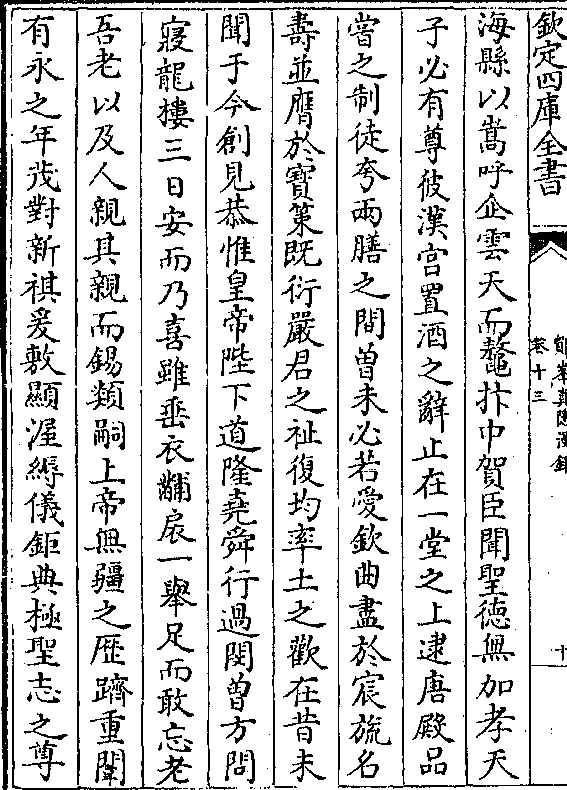 欽定四庫全書
鄮峰真隱漫錄
卷十三
十
海縣以嵩呼企雲天而鼇抃中賀臣聞聖徳無加孝天
子必有尊彼漢宫置酒之辭止在一堂之上逮唐殿品
嘗之制徒夸兩膳之間曽未必若愛欽曲盡於宸旒名
夀並膺於寳䇿既衍嚴君之祉復均率土之歡在昔未
聞于今創見恭惟皇帝陛下道隆堯舜行過閔曽方問
寝龍樓三日安而乃喜雖垂衣黼扆一舉足而敢忘老
吾老以及人親其親而錫類嗣上帝無疆之歴躋重闈
有永之年茂對新祺爰敷顯渥縟儀鉅典極聖志之尊